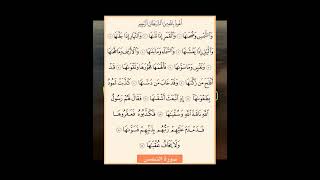 أعوذ بالله من الشيطان الرجيم
وَالشَّمْسِ وَضُحَىٰهَا وَالْقَمَرِ إِذَا تَلَىٰهَا وَالنَّهَارِ إِذَا جَلَّىٰهَا
وَاللَّيْلِ إِذَا يَغْشَىٰهَا وَالسَّمَاءِ وَمَا بَنَىٰهَا وَالْأَرْضِ وَمَا طَحَىٰهَا
وَنَفْسٍ وَمَا سَوَّىٰهَا فَأَلْهَمَهَا فُجُورَهَا وَتَقْوَىٰهَا قَدْ
أَفْلَحَ مَن زَكَّىٰهَا وَقَدْ خَابَ مَن دَسَّىٰهَا كَذَّبَتْ ثَمُودُ
بِطَغْوَىٰهَا إِذِ انبَعَثَ أَشْقَىٰهَا فَقَالَ لَهُمْ رَسُولُ
اللَّهِ نَاقَةَ اللَّهِ وَسُقْيَٰهَا فَكَذَّبُوهُ فَعَقَرُوهَا
فَدَمْدَمَ عَلَيْهِمْ رَبُّهُم بِذَنبِهِمْ فَسَوَّىٰهَا
وَلَا يَخَافُ عُقْبَٰهَا
سورة الشمس